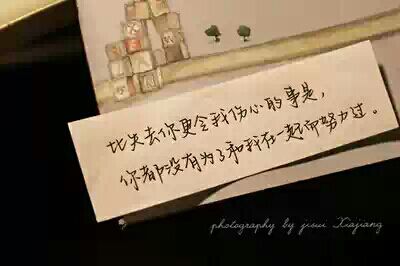 比失去你更令我伤心的事是，
你都没有为了和我在一起而努力过。
photography by jisui Xiajiang